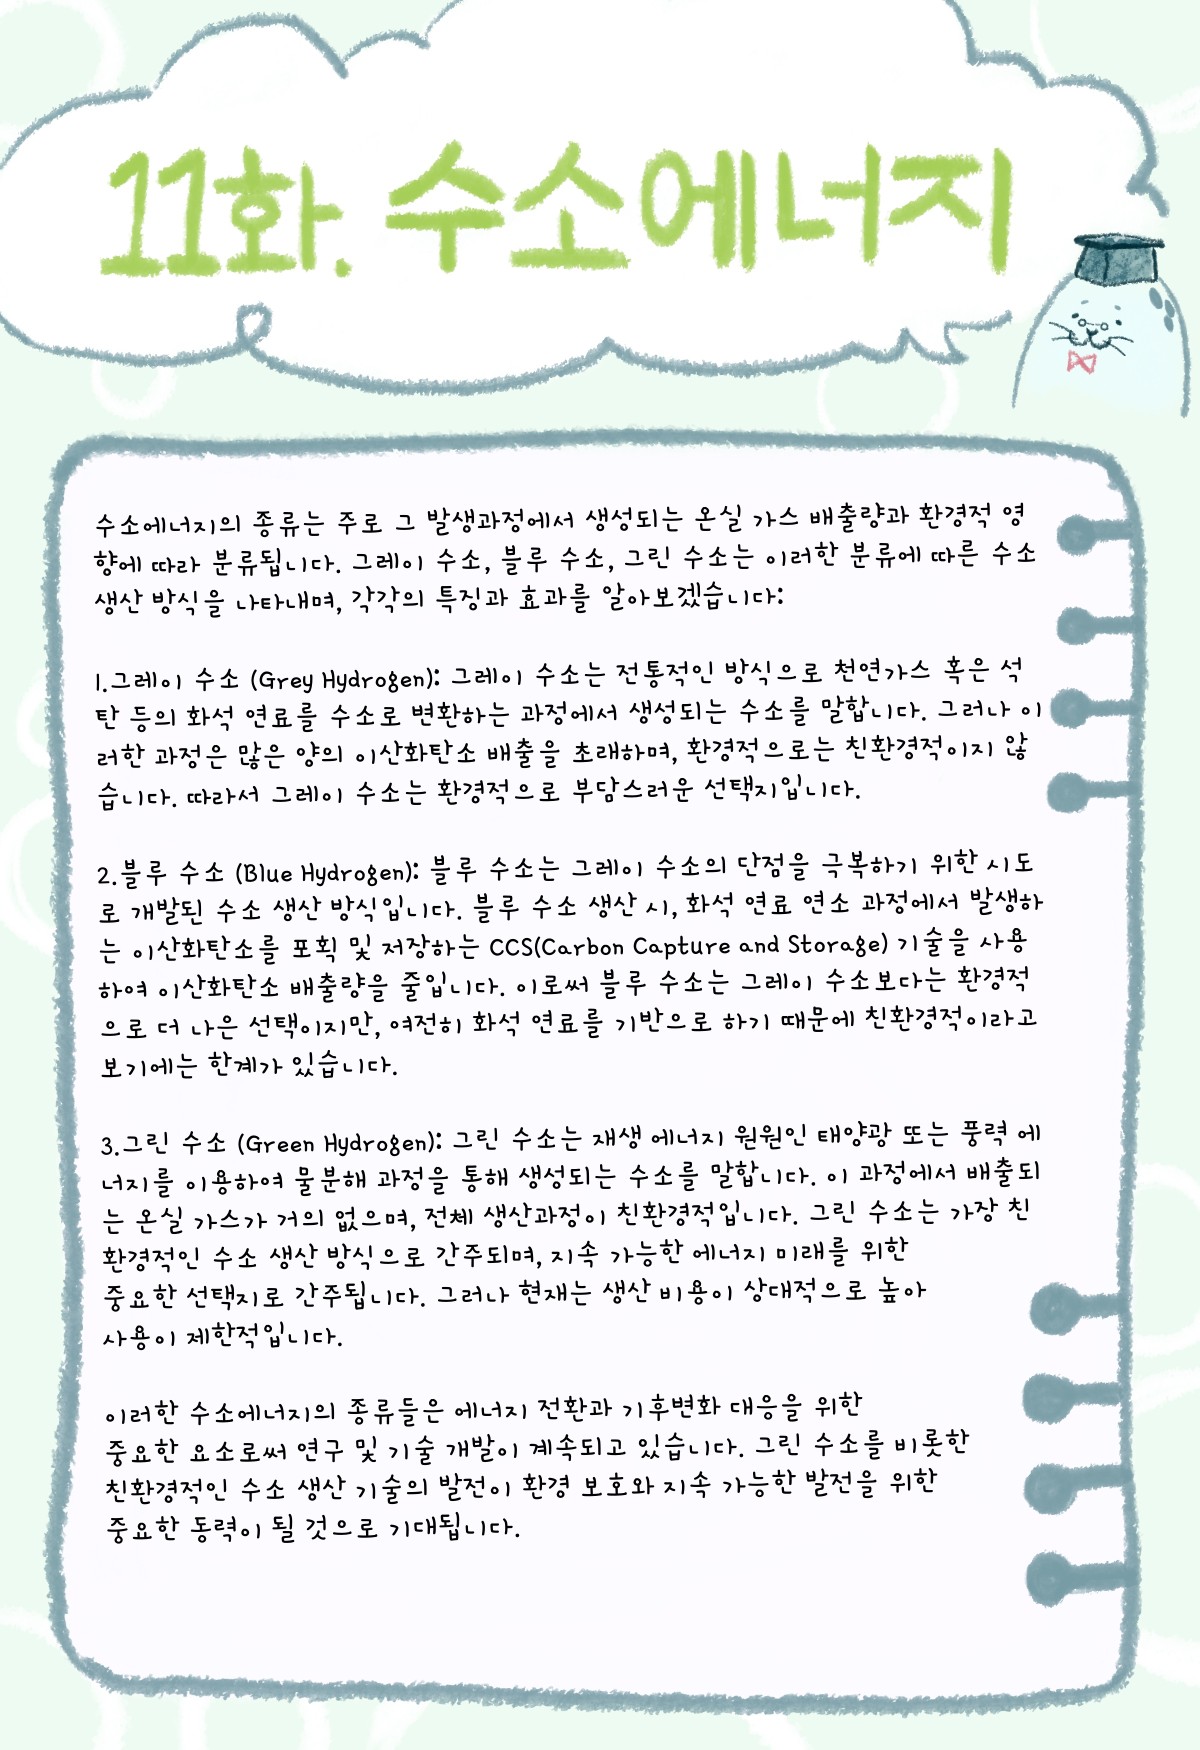 11화. 수소에너지
수소에너지의 종류는 주로 그 발생과정에서 생성되는 온실 가스 배출량과 환경적 영
향에 따라 분류됩니다. 그레이 수소, 블루 수소, 그린 수소는 이러한 분류에 따른 수소
생산 방식을 나타내며, 각각의 특징과 효과를 알아보겠습니다:
1.그레이 수소 (Grey Hydrogen): 그레이 수소는 전통적인 방식으로 천연가스 혹은 석
탄 등의 화석 연료를 수소로 변환하는 과정에서 생성되는 수소를 말합니다. 그러나 이
러한 과정은 많은 양의 이산화탄소 배출을 초래하며, 환경적으로는 친환경적이지 않
습니다. 따라서 그레이 수소는 환경적으로 부담스러운 선택지입니다.
2.블루 수소 (Blue Hydrogen): 블루 수소는 그레이 수소의 단점을 극복하기 위한 시도
로 개발된 수소 생산 방식입니다. 블루 수소 생산 시, 화석 연료 연소 과정에서 발생하
는 이산화탄소를 포획 및 저장하는 CCS(Carbon Capture and Storage) 기술을 사용
하여 이산화탄소 배출량을 줄입니다. 이로써 블루 수소는 그레이 수소보다는 환경적
으로 더 나은 선택이지만, 여전히 화석 연료를 기반으로 하기 때문에 친환경적이라고
보기에는 한계가 있습니다.
3.그린 수소 (Green Hydrogen): 그린 수소는 재생 에너지 원원인 태양광 또는 풍력 에
너지를 이용하여 물분해 과정을 통해 생성되는 수소를 말합니다. 이 과정에서 배출되
는 온실 가스가 거의 없으며, 전체 생산과정이 친환경적입니다. 그린 수소는 가장 친
환경적인 수소 생산 방식으로 간주되며, 지속 가능한 에너지 미래를 위한
중요한 선택지로 간주됩니다. 그러나 현재는 생산 비용이 상대적으로 높아
사용이 제한적입니다.
이러한 수소에너지의 종류들은 에너지 전환과 기후변화 대응을 위한
중요한 요소로써 연구 및 기술 개발이 계속되고 있습니다. 그린 수소를 비롯한
친환경적인 수소 생산 기술의 발전이 환경 보호와 지속 가능한 발전을 위한
중요한 동력이 될 것으로 기대됩니다.